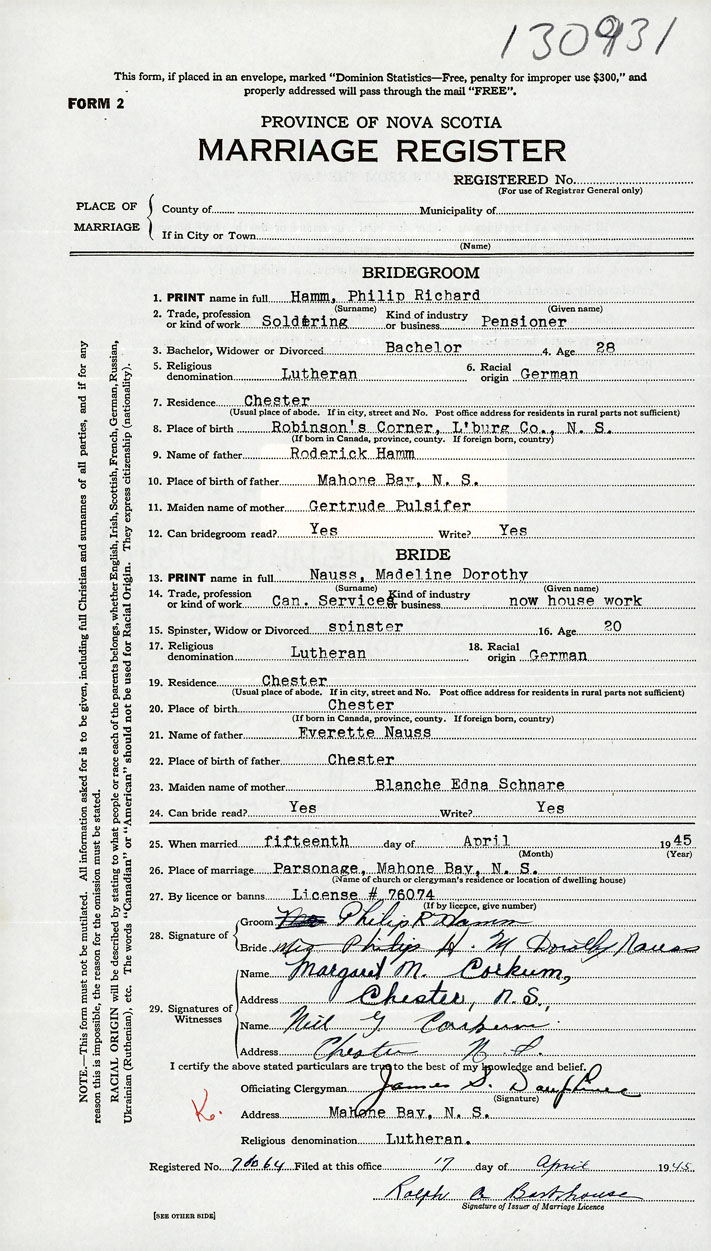 130931
This form, if placed in an envelope, marked "Dominion Statistics—Free, penalty for improper use $300," and
properly addressed will pass through the mail "FREE".
FORM 2
PROVINCE OF NOVA SCOTIA
MARRIAGE REGISTER
REGISTERED No.
(For use of Registrar General only)
PLACE OF MARRIAGE
County of Municipality of
If in City or Town
(Name)
BRIDEGROOM
1. PRINT name in full Hamm, Philip Richard
(Surname) (Given name)
2. Trade, profession or kind of work Soldering Kind of industry or business Pensioner
3. Bachelor, Widower or Divorced Bachelor 4. Age 28
5. Religious denomination Lutheran 6. Racial origin German
7. Residence Chester
(Usual place of abode. If in city, street and No. Post office address for residents in rural parts not sufficient)
8. Place of birth Robinson's Corner, L'burg Co., N. S.
(If born in Canada, province, county. If foreign born, country)
9. Name of father Roderick Hamm
10. Place of birth of father Mahone Bay, N. S.
11. Maiden name of mother Gertrude Pulsifer
12. Can bridegroom read? Yes Write? Yes
BRIDE
13. PRINT name in full Nauss, Madeline Dorothy
(Surname) (Given name)
14. Trade, profession or kind of work Can. Services Kind of industry or business now house work
15. Spinster, Widow or Divorced spinster 16. Age 20
17. Religious denomination Lutheran 18. Racial origin German
19. Residence Chester
(Usual place of abode. If in city, street and No. Post office address for residents in rural parts not sufficient)
20. Place of birth Chester
(If born in Canada, province, county. If foreign born, country)
21. Name of father Everette Nauss
22. Place of birth of father Chester
23. Maiden name of mother Blanche Edna Schnare
24. Can bride read? Yes Write? Yes
25. When married fifteenth day of April 1945
(Month) (Year)
26. Place of marriage Parsonage, Mahone Bay, N. S.
(Name of church or clergyman's residence or location of dwelling house)
27. By licence or banns License # 76074
(If by licence, give number)
28. Signature of
Groom Philip R Hamm
Bride Mrs Philip H. M Dorothy Nauss
29. Signatures of Witnesses
Name Margaret M. Corkum,
Address Chester, N.S.,
Name Neil G Corkum
Address Chester N.S.
I certify the above stated particulars are true to the best of my knowledge and belief.
Officiating Clergyman James S. Dauphinee
(Signature)
K.
Address Mahone Bay, N. S.
Religious denomination Lutheran.
Registered No. Filed at this office 17 day of April 1945
Ralph A
Signature of Issuer of Marriage Licence
[SEE OTHER SIDE]
NOTE.—This form must not be mutilated. All information asked for is to be given, including full Christian and surnames of all parties, and if for any
reason this is impossible, the reason for the omission must be stated.
RACIAL ORIGIN will be described by stating to what people or race each of the parents belongs, whether English, Irish, Scottish, French, German, Russian,
Ukrainian (Ruthenian), etc. The words "Canadian" or "American" should not be used for Racial Origin. They express citizenship (nationality).